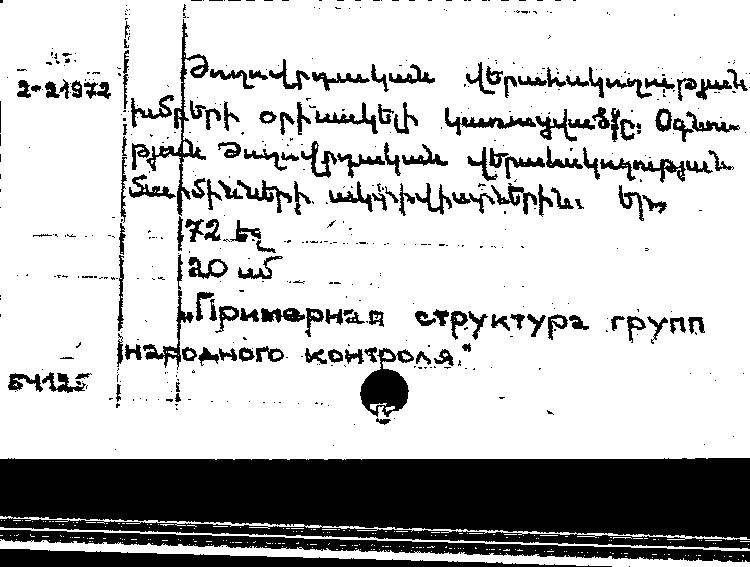 2-21972
Ժողովրդական վերահսկողության
խմբերի օրինակելի կառուցվածքը: Օգնու-
թյան ժողովրդական վերահսկողության
մարմինների ակտիվիստներին: Եր.,
72 եզ
20 սմ
„Примерная структура групп
народного контроля.“
БЧ125